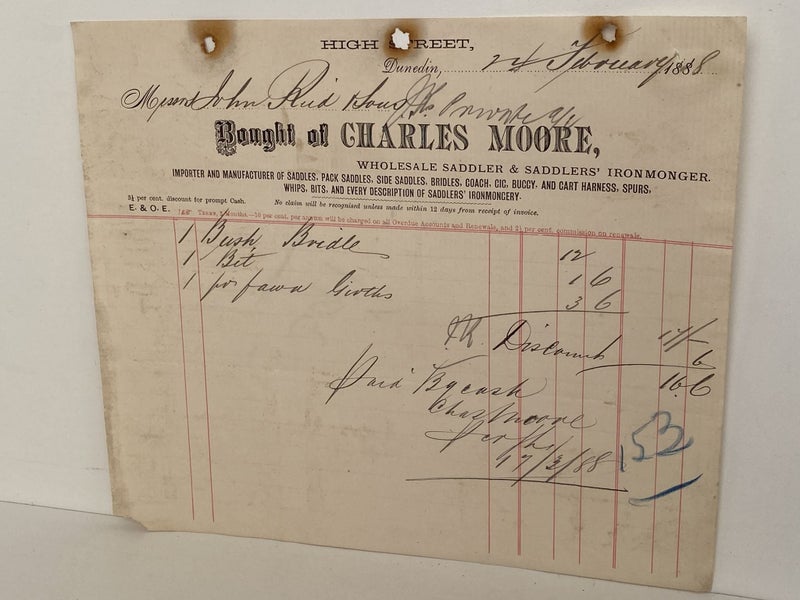 HIGH STREET,
Dunedin, 24 February 1888
Messrs John Reid & Sons Jno Private a/c
Bought of CHARLES MOORE,
WHOLESALE SADDLER & SADDLERS' IRONMONGER.
IMPORTER AND MANUFACTURER OF SADDLES, PACK SADDLES, SIDE SADDLES, BRIDLES, COACH, GIG, BUGGY, AND CART HARNESS, SPURS,
WHIPS, BITS, AND EVERY DESCRIPTION OF SADDLERS' IRONMONGERY.
2½ per cent. discount for prompt Cash. No claim will be recognised unless made within 12 days from receipt of invoice.
E. & O. E. Months.—10 per cent. per annum will be charged on all Overdue Accounts and Renewals, and 2½ per cent. commission on renewals.
1 Bush Bridle 12
1 Bit 1 6
1 pr fawn Girths 3 6
17/-
Discount 6
16.6
Paid By cash
Chas Moore
/3/88
153